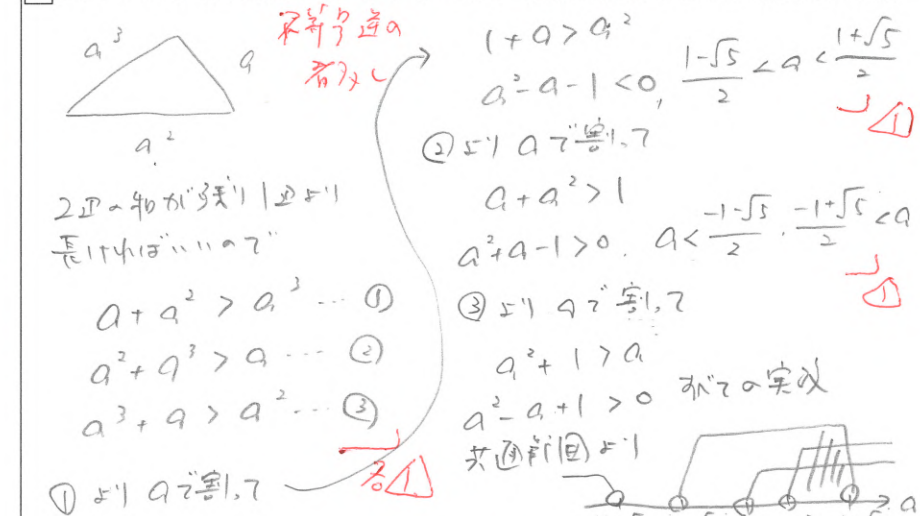 a³
a
a²
不等号逆の
2辺の和が残り1辺より
長ければいいので
a + a² > a³ … ①
a² + a³ > a … ②
a³ + a > a² … ③
各△1
① より aで割って
1 + a > a²
a² - a - 1 < 0, (1-√5)/2 < a < (1+√5)/2
△1
② より aで割って
a + a² > 1
a² + a - 1 > 0. a < (-1-√5)/2, (-1+√5)/2 < a
△1
③ より aで割って
a² + 1 > a
a² - a + 1 > 0 すべての実数
共通範囲より
a